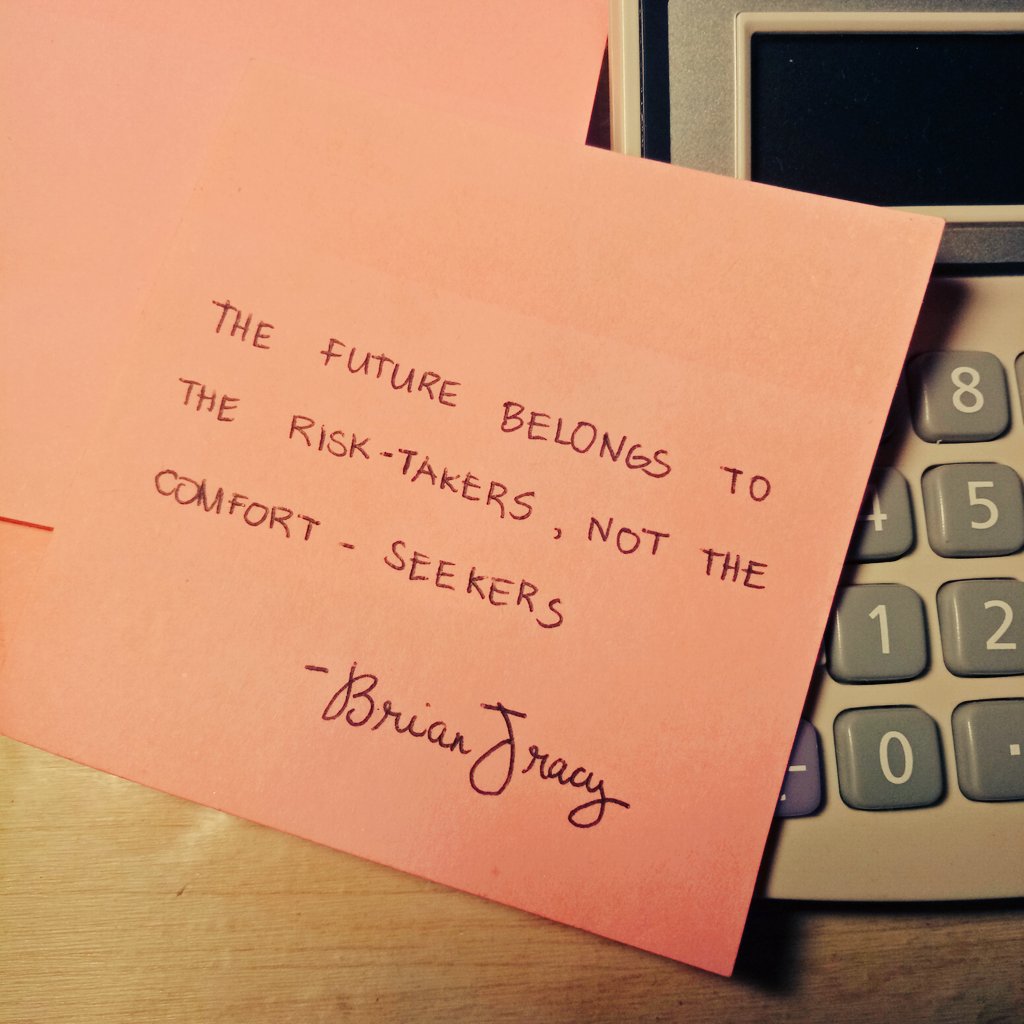 THE FUTURE BELONGS TO
THE RISK-TAKERS, NOT THE
COMFORT - SEEKERS
- Brian Tracy
8
4 5
1 2
0 .